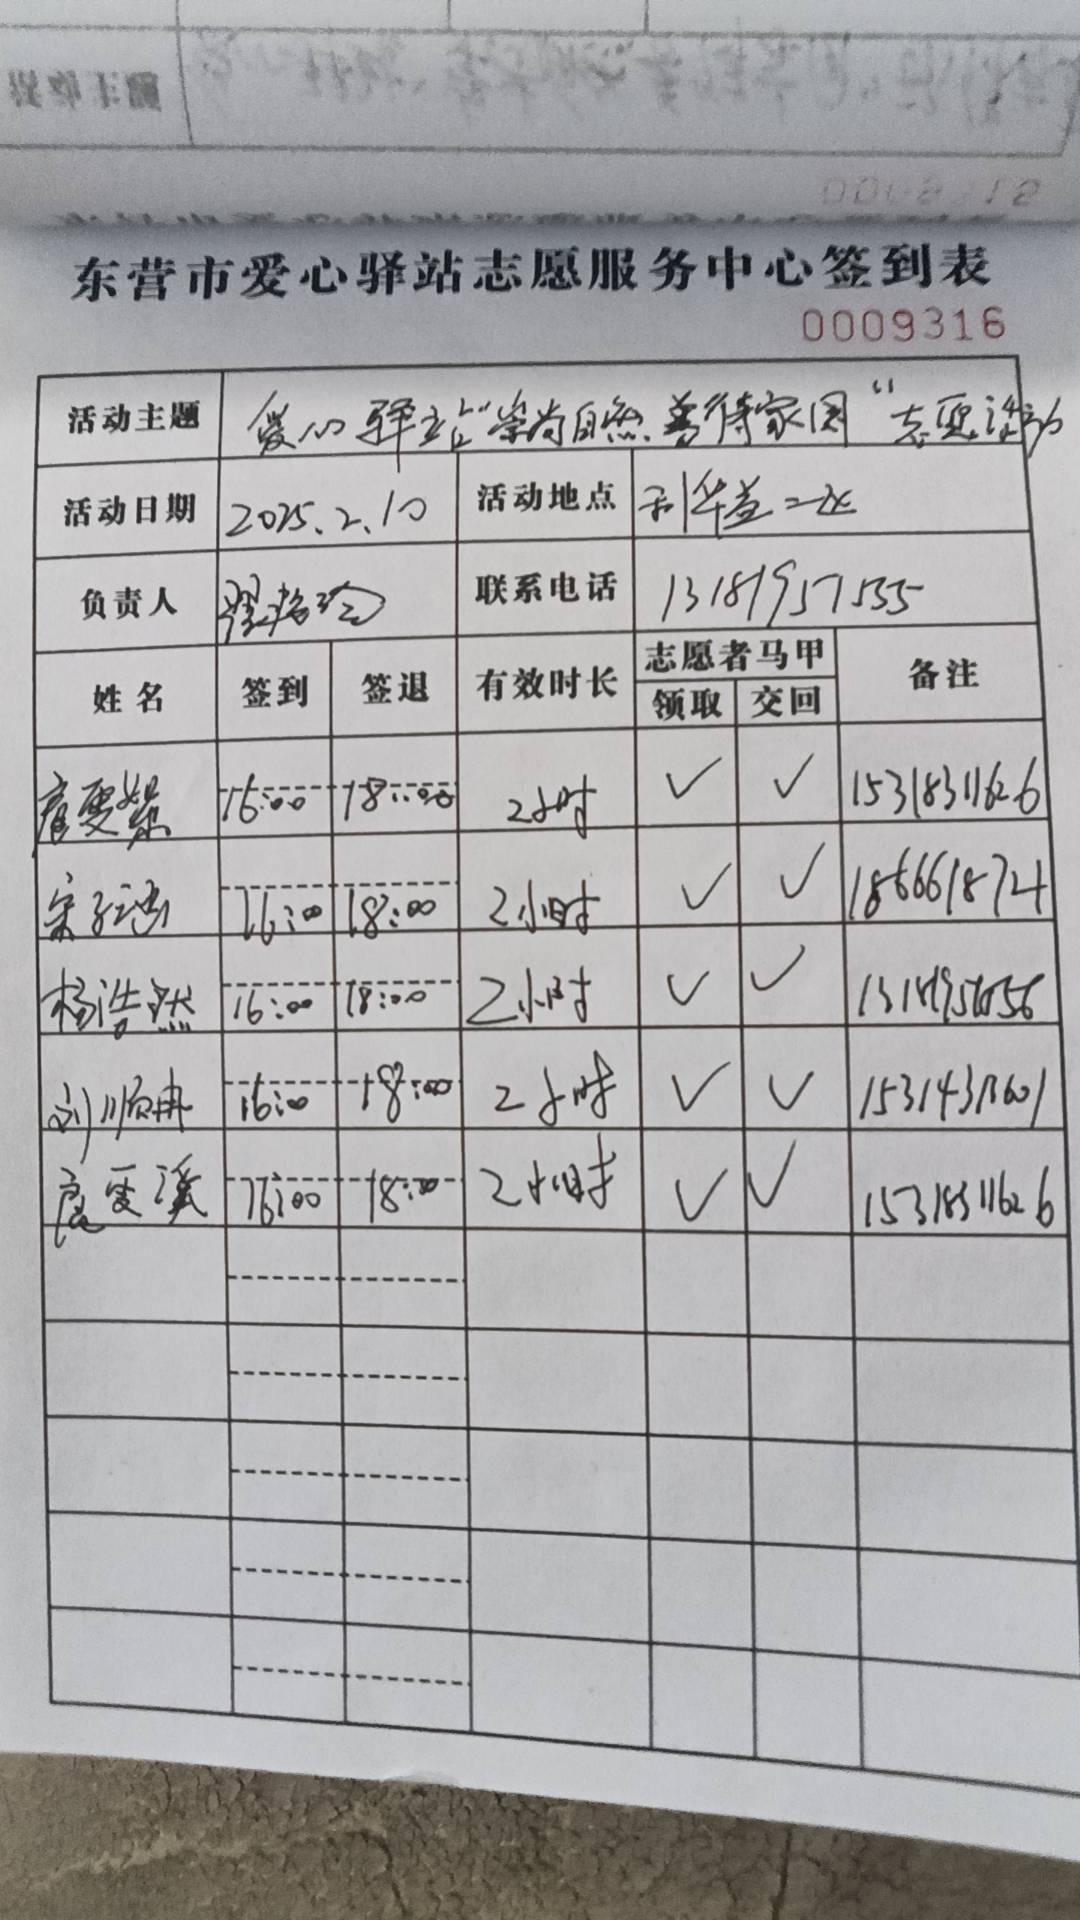 东营市爱心驿站志愿服务中心签到表
0009316
活动主题 爱心驿站"崇尚自然、善待家园"志愿活动
活动日期 2025.2.10 活动地点 利华益二区
负责人 联系电话 13181957555
姓名 签到 签退 有效时长 志愿者马甲 领取 交回 备注
16:00 18:00 2小时 ✓ ✓ 15318311626
宋子涵 16:00 18:00 2小时 ✓ ✓ 18666618724
杨浩然 16:00 18:00 2小时 ✓ ✓
刘顺冉 16:00 18:00 2小时 ✓ ✓
16:00 18:00 2小时 ✓ ✓ 15318311626